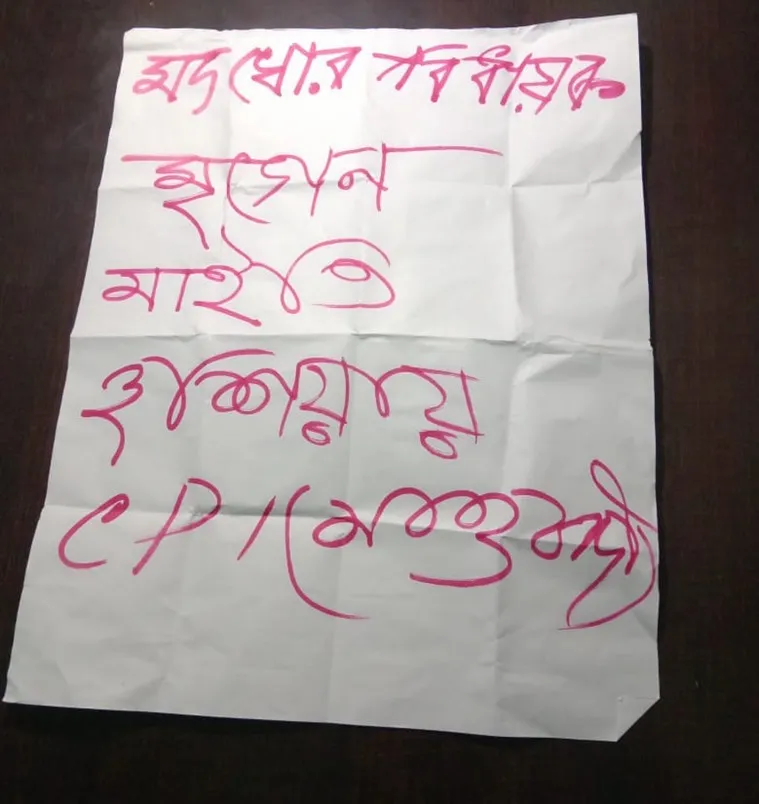 মদ খোর বিধায়ক
মৃগেন
মাইতি
হুশিয়ার
CPI মোওবাদী